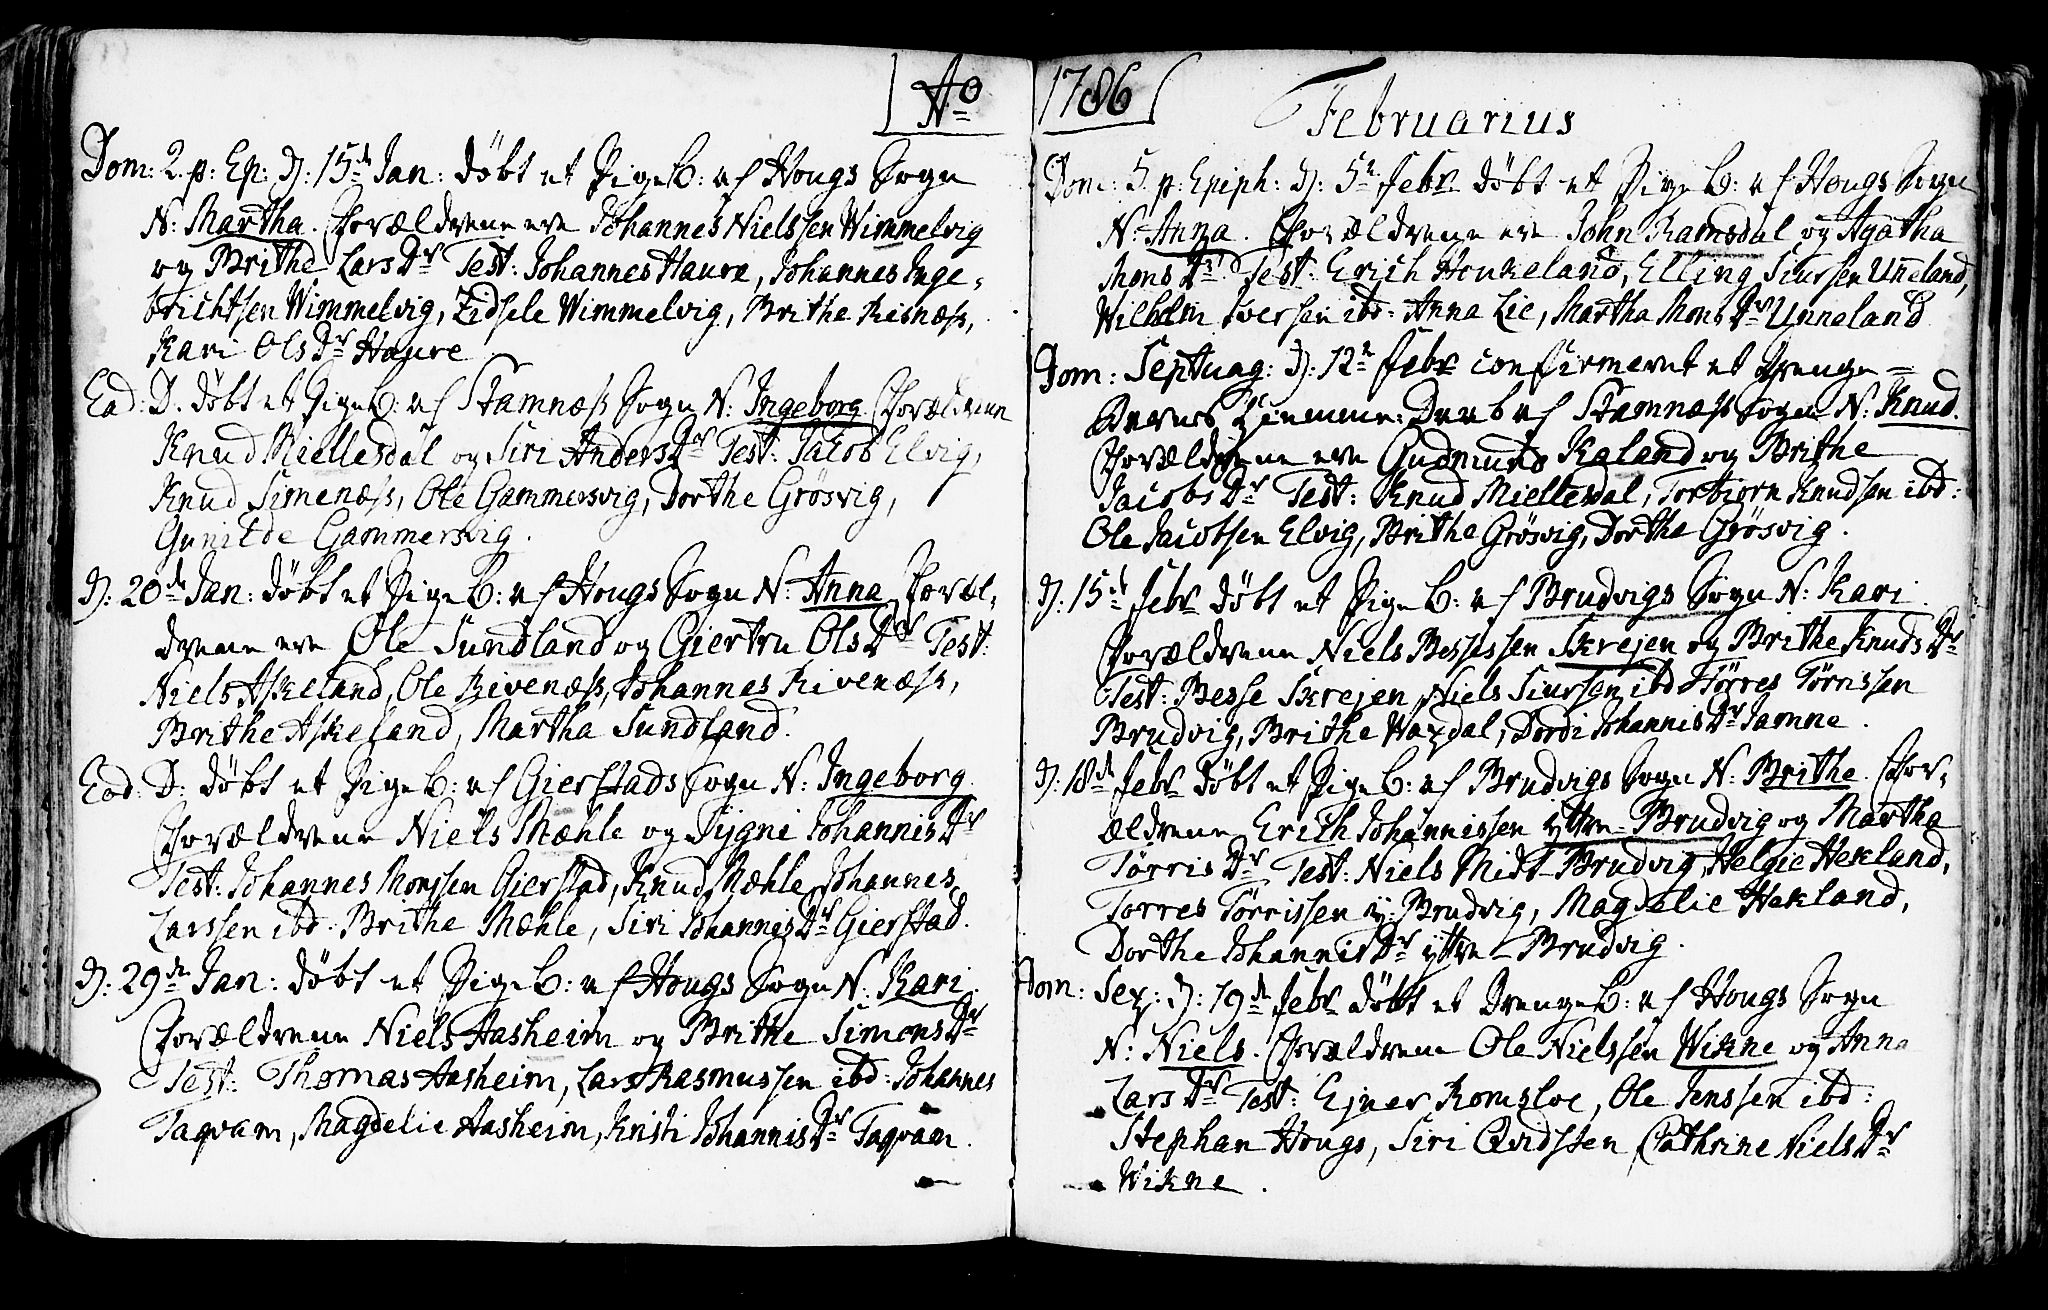 Ao
Dom: 2. p: Ep: D: 15de Jan: døbt et PigeB: af Hougs Sogn
N: Martha. Forældrene ere Johannes Nielssen Wimmelvig
og Brithe Lars Dr Test: Johannes Haure, Johannes Inge-
brichtsen Wimmelvig, Zidsele Wimmelvig, Brithe Risnæss,
Kari Ols Dr Haure
Ead: D. døbt et PigeB: af Stamnæss Sogn N: Ingeborg Forældrene
Knud Miellesdal og Siri Anders Dr Test: Jacob Elvig,
Knud Simenæss, Ole Gammersvig, Dorthe Grøsvig,
Gunilde Gammersvig.
D: 20de Jan: døbt et PigeB: af Hougs Sogn N: Anna Foræl-
drene ere Ole Sundland og Giertru Ols Dr Test:
Niels Askeland, Ole Rivenæss, Johannes Rivenæss,
Brithe Askeland, Martha Sundland.
Ead: D: døbt et PigeB: af Gierstads Sogn N: Ingeborg
Forældrene Niels Mæhle og Sygni Johannis Dr
Test: Johannes Monssen Gierstad, Knud Mæhle, Johannes
Larssen ibd: Brithe Mæhle, Siri Johannis Dr Gierstad.
D: 29de Jan: døbt et PigeB: af Hougs Sogn N: Kari.
Forældrene Niels Aasheim og Brithe Simons Dr
Test: Thomas Aasheim, Lars Rasmussen ibd: Johannes
Taqvam, Magdelie Aasheim, Kristi Johannis Dr Taqvam.
1786
Februarius
Dom: 5. p: Epiph: D: 5te Febr døbt et Pige B: af Hougs Sogn
N: Anna. Forældrene ere John Ramsdal og Agatha
Mons Dr Test: Erich Houkeland, Elling Siursen Unneland,
Wilhelm Iversen ibd: Anna Lie, Martha Mons Dr Unneland
Dom: Septuag: D: 12te Febr confirmeret et Drenge=
Barns Hiemme-Daab af Stamnæss Sogn N: Knud.
Forældrene ere Gudmund Kaland og Brithe
Jacobs Dr Test: Knud Miellesdal, Torbiørn Knudsen ibd:
Ole Jacobsen Elvig, Brithe Grøsvig, Dorthe Grøsvig.
D: 15de Febr døbt et Pige B: af Brudvigs Sogn N: Kari.
Forældrene Niels Bessessen Skrejen og Brithe Knuds Dr
Test: Besse Skrejen, Niels Siursen ibd: Tørres Tørrissen
Brudvig, Brithe Waxdal, Dordi Johannis Dr Jamne.
D: 18de Febr døbt et Pige B: af Brudvigs Sogn N: Brithe. For-
ældrene Erich Johannissen yttre-Brudvig og Martha
Tørris Dr Test: Niels Midt-Brudvig, Helgie Hekland,
Torres Tørrissen y: Brudvig, Magdelie Hekland,
Dorthe Johannis Dr yttre-Brudvig.
Dom: Sex: D: 19de Febr døbt et DrengeB: af Hougs Sogn
N: Niels. Forældrene Ole Nielssen Wikne og Anna
Lars Dr Test: Ejner Romsloe, Ole Jenssen ibd:
Stephan Hougs, Siri Qvidsten, Cathrine Niels Dr
Wikne.